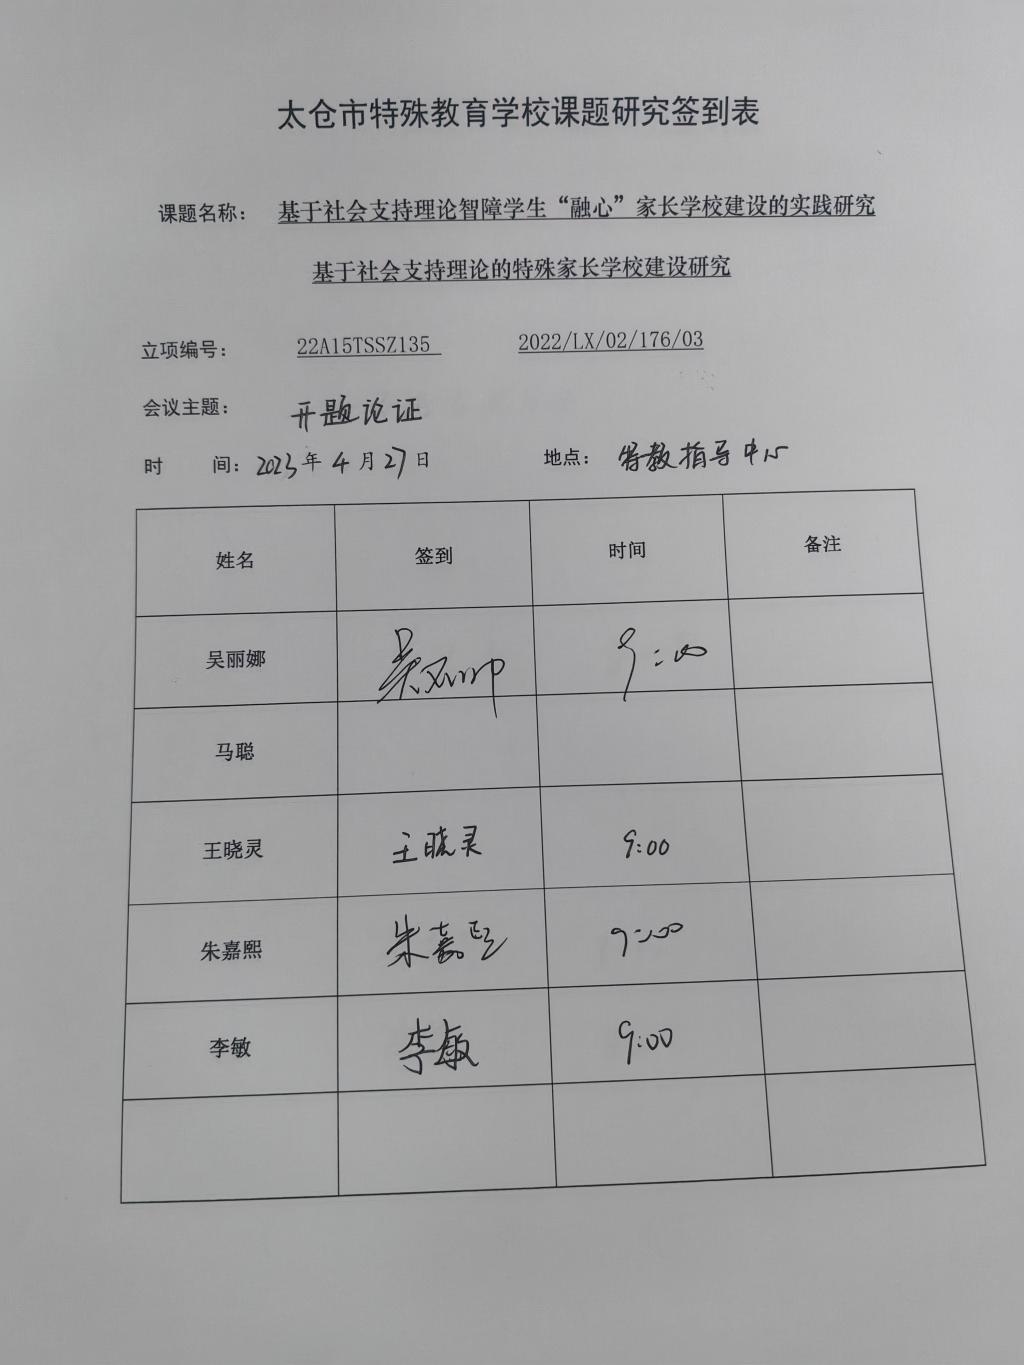 太仓市特殊教育学校课题研究签到表
课题名称： 基于社会支持理论智障学生“融心”家长学校建设的实践研究
基于社会支持理论的特殊家长学校建设研究
立项编号： 22A15TSSZ135 2022/LX/02/176/03
会议主题： 开题论证
时 间：2023年4月27日 地点： 特教指导中心
姓名 签到 时间 备注
吴丽娜 吴丽娜 9:00
马聪
王晓灵 王晓灵 9:00
朱嘉熙 朱嘉熙 9:00
李敏 李敏 9:00